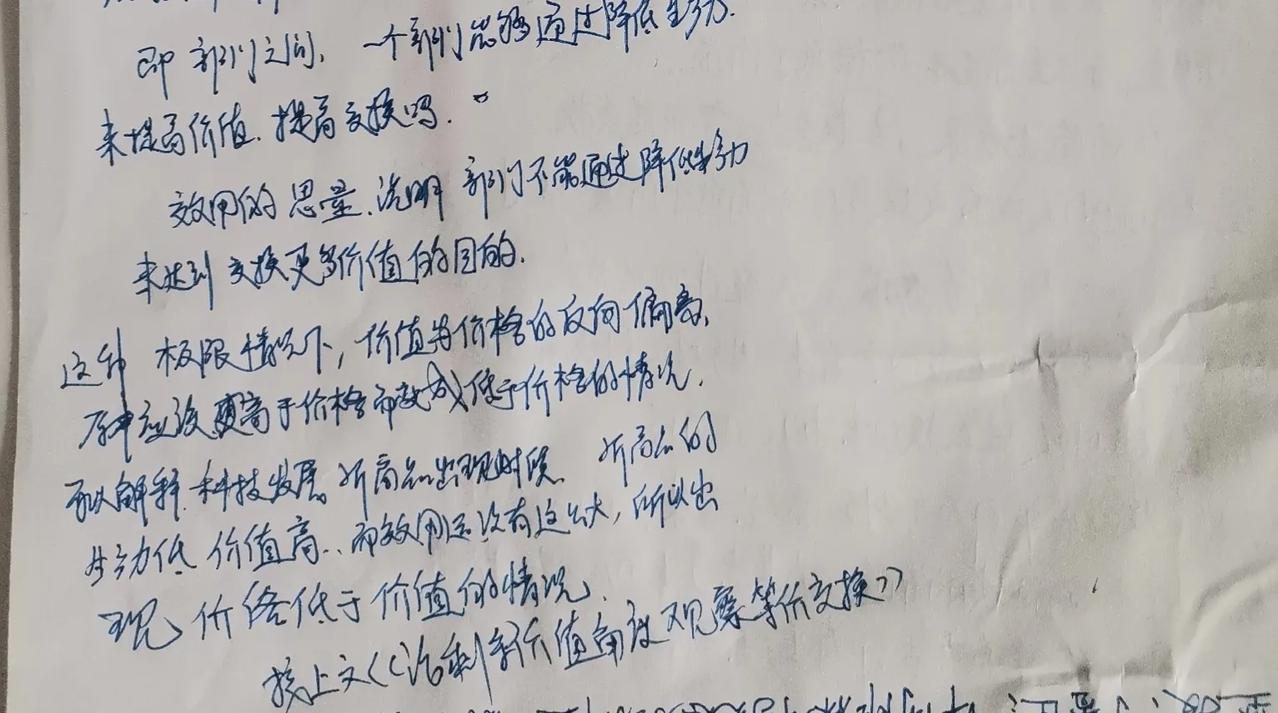 即部门之间,一个部门能够通过降低生动.
来提高价值.提高交换吗.
效用的思量.说明部门不能通过降低生动力
来达到交换更多价值的目的.
这种 极限情况下,价值与价格的反向偏离,
应该更高于价格而变成低于价格的情况.
可以解释.科技发展。新商品出现时段. 新商品的
生动低 价值高..而效用还没有这么大,所以出
现 价格低于价值的情况.
接上文《《活剩余价值角度观察等价交换》》